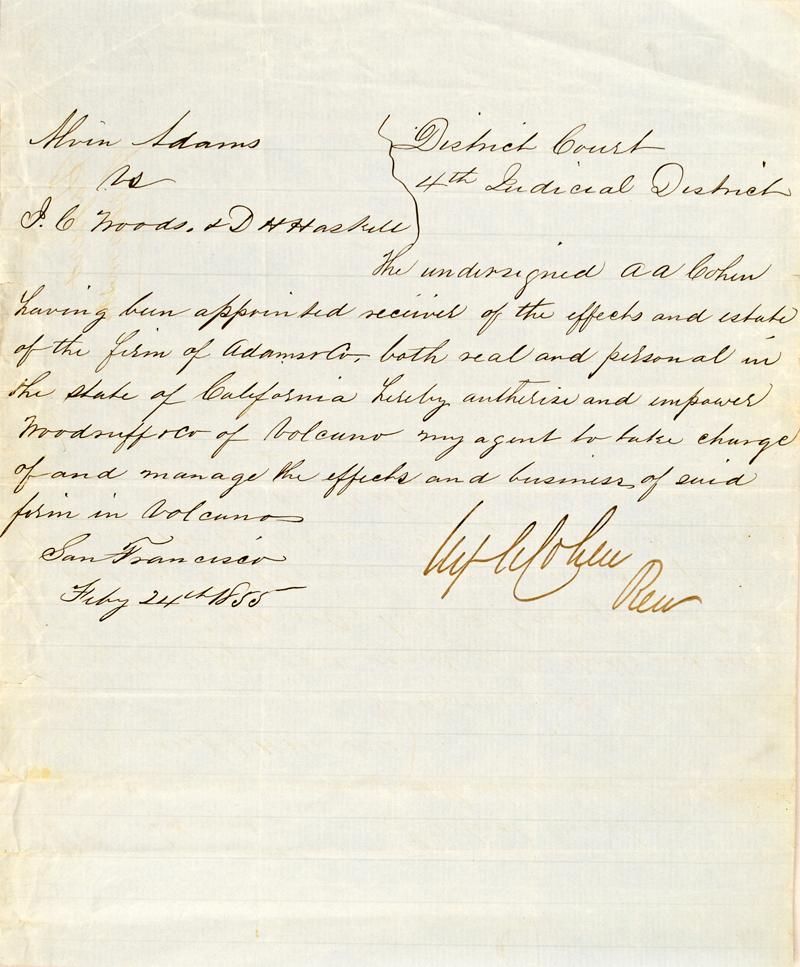 Alvin Adams
vs
I. C Woods. & D H Haskell
District Court
4th Judicial District
The undersigned A A Cohen
having been appointed receiver of the effects and estate
of the firm of Adams & Co. both real and personal in
the state of California hereby autherise and empower
Woodruff & Co of Volcano my agent to take charge
of and manage the effects and business of said
firm in Volcano
San Francisco
Feby 24th 1855
Cohen